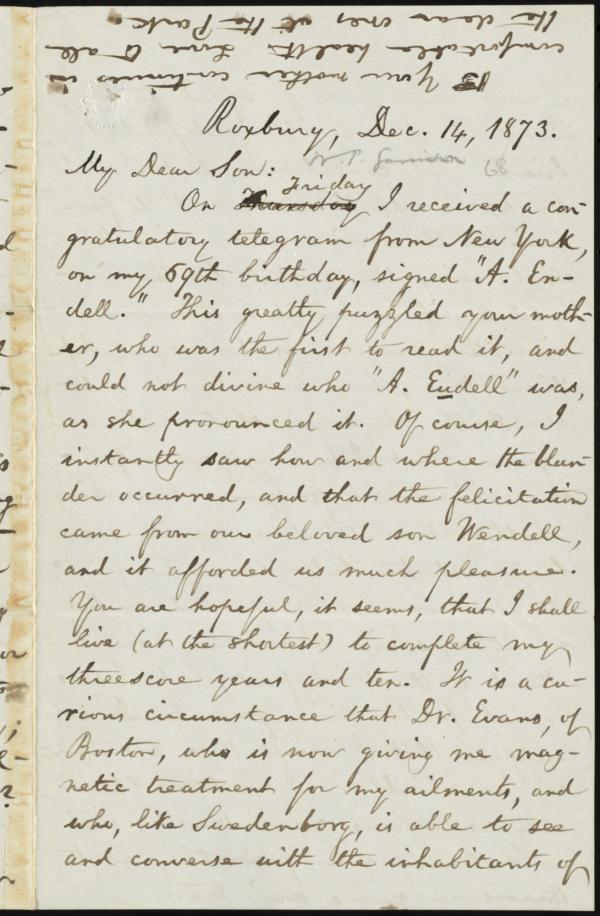 Your mother continues in
comfortable health. Love to all
the dear ones at the Park.
Roxbury, Dec. 14, 1873.
My Dear Son: W. P. Garrison 68
On Thursday Friday I received a con-
gratulatory telegram from New York,
on my 69th birthday, signed "A. En-
dell." This greatly puzzled your moth-
er, who was the first to read it, and
could not divine who "A. Eudell" was,
as she pronounced it. Of course, I
instantly saw how and where the blun-
der occurred, and that the felicitation
came from our beloved son Wendell,
and it afforded us much pleasure.
You are hopeful, it seems, that I shall
live (at the shortest) to complete my
threescore years and ten. It is a cu-
rious circumstance that Dr. Evans, of
Boston, who is now giving me mag-
netic treatment for my ailments, and
who, like Swedenborg, is able to see
and converse with the inhabitants of